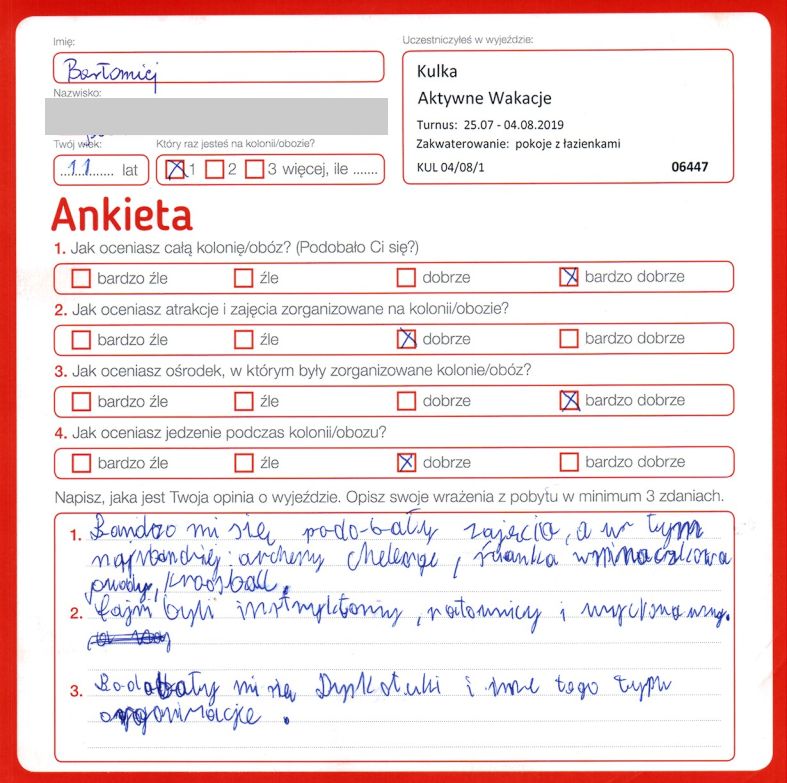 Imię:
Bartomiej
Nazwisko:
Twój wiek:
11 lat
Który raz jesteś na kolonii/obozie?
1 2 3 więcej, ile .......
Uczestniczyłeś w wyjeździe:
Kulka
Aktywne Wakacje
Turnus: 25.07 - 04.08.2019
Zakwaterowanie: pokoje z łazienkami
KUL 04/08/1 06447
Ankieta
1. Jak oceniasz całą kolonię/obóz? (Podobało Ci się?)
bardzo źle źle dobrze bardzo dobrze
2. Jak oceniasz atrakcje i zajęcia zorganizowane na kolonii/obozie?
bardzo źle źle dobrze bardzo dobrze
3. Jak oceniasz ośrodek, w którym były zorganizowane kolonie/obóz?
bardzo źle źle dobrze bardzo dobrze
4. Jak oceniasz jedzenie podczas kolonii/obozu?
bardzo źle źle dobrze bardzo dobrze
Napisz, jaka jest Twoja opinia o wyjeździe. Opisz swoje wrażenia z pobytu w minimum 3 zdaniach.
1. Bardzo mi się podobały zajęcia, a w tym
najbardziej: archery , ścianka wspinaczkowa
2. Fajni byli , ratownicy i
3. Podobały mi się Dyskoteki i inne tego typu